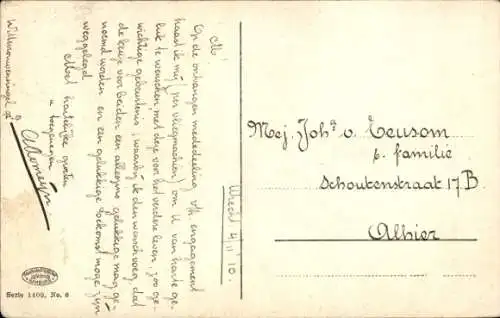 M!
Op de ontvangen mededeeling v/h engagement
haast ik mij (per vliegmachien) om U van harte ge-
luk te wenschen met deze voor het verdere leven, zoo ge-
wichtige gebeurtenis; waarbij ik den wensch voeg, dat
de keuze voor beiden een allezins gelukkige mag ge-
noemd worden en een gelukkige toekomst moge zijn
weggelegd.
Met hartelijke groeten
u toegenegen
A Romeijn
Utrecht 4/11 '10.
Mej. Joha v. Leusom
p. familie
Schoutenstraat 17B
Alhier
Serie 1400, No. 6